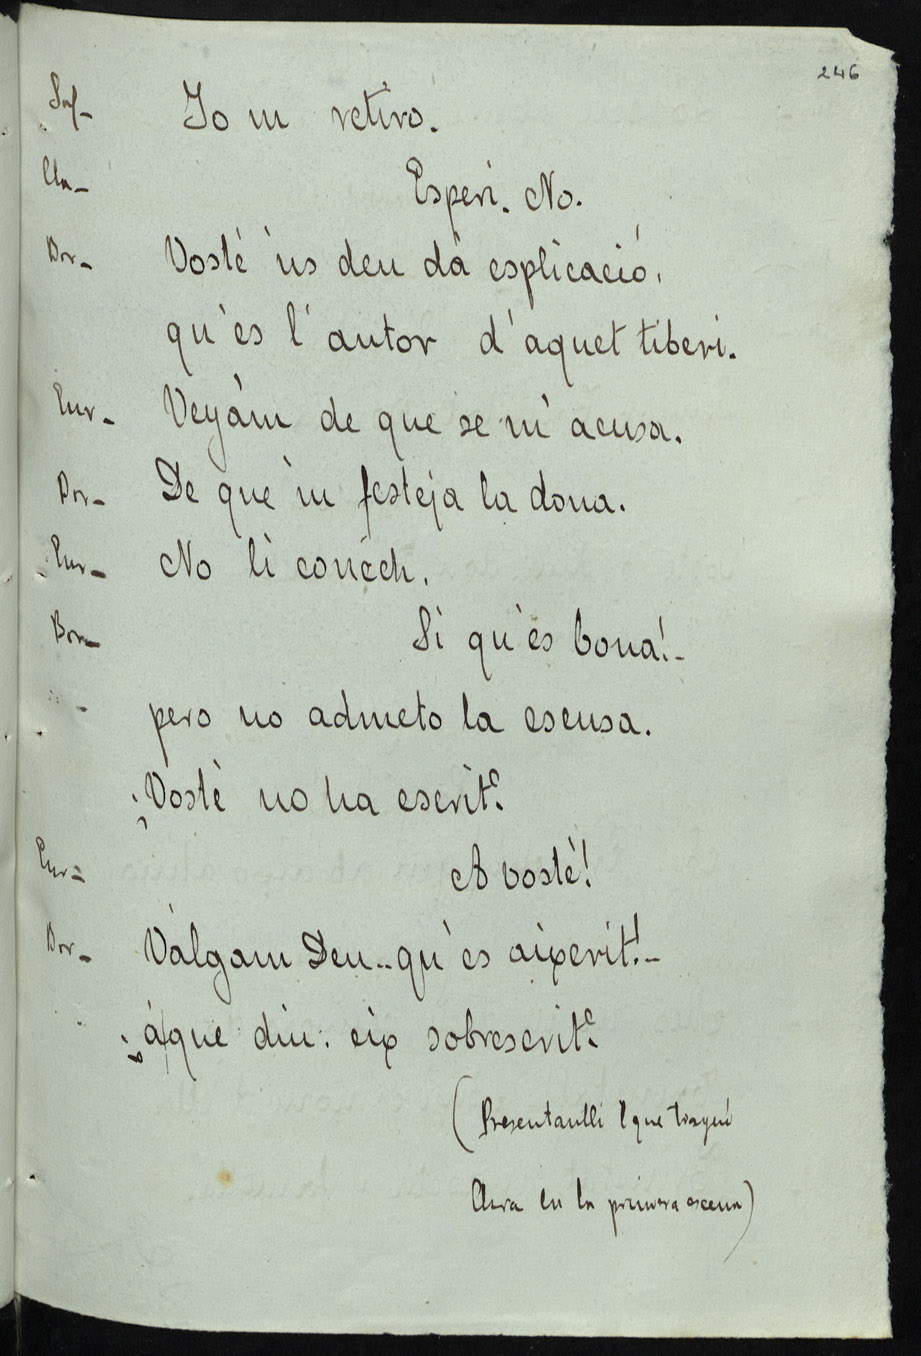 246
Sof- Jo m retiro.
Cla- Esperi. No.
Dor- Vosté 'ns deu dá esplicació,
qu'es l'autor d'aquet tiberi.
Enr- Veyám de que se m'acusa.
Dor- De que 'm festeja la dona.
Enr- No li conech.
Dor- Si qu'es bona!-
pero no admeto la escusa.
¿Vosté no ha escrit?
Enr- A vosté!
Dor- Válgam Deu.. qu'es aixerit!-
¿á que diu: eix sobrescrit?
(Presentantli l que tragué
Clara en la primera escena)